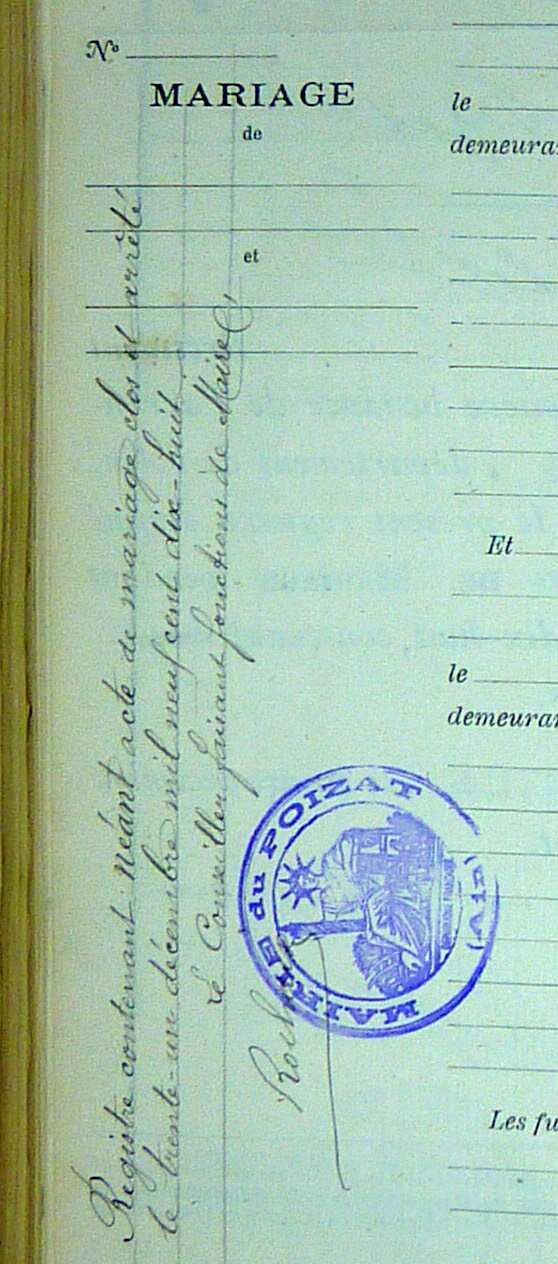 N°
MARIAGE
de
et
Registre contenant Néant acte de mariage clos et arrêté
le trente-un décembre mil neuf cent dix-huit.
Le Conseiller faisant fonctions de Maire
MAIRIE du POIZAT
(AIN)
le
demeuran
Et
le
demeuran
Les fu